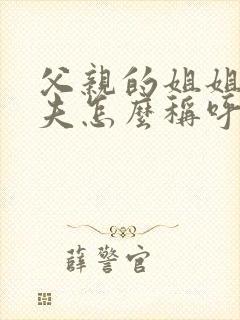 父親的姐姐
夫怎麼稱呼
薛警官